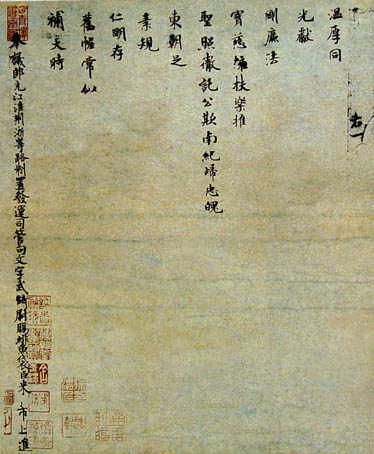 右一
溫厚同
光獻
剛廉法
寶慈擁扶樂推
聖照徹託公欺南紀歸忠魄
東朝足
素規
仁明存
舊幄常似
補天時
奉議郎充江淮荆浙等路制置發運司管勾文字武騎尉賜緋魚袋臣米芾上進